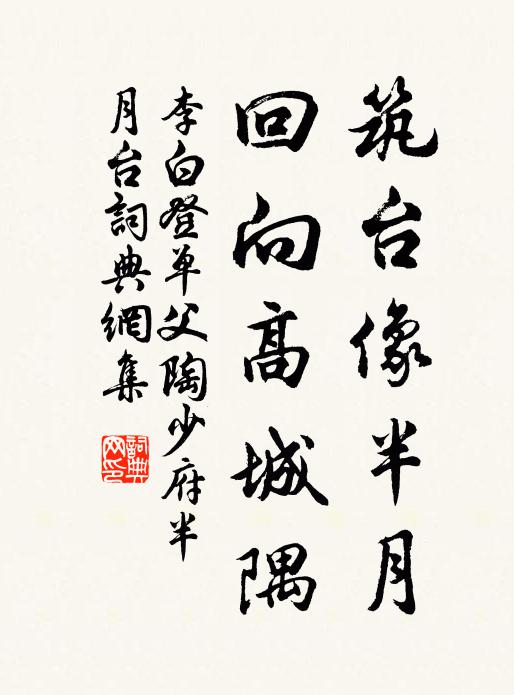 筑台像半月
回向高城隅
李白登单父陶少府半
月台詞典網集
詞典
网印